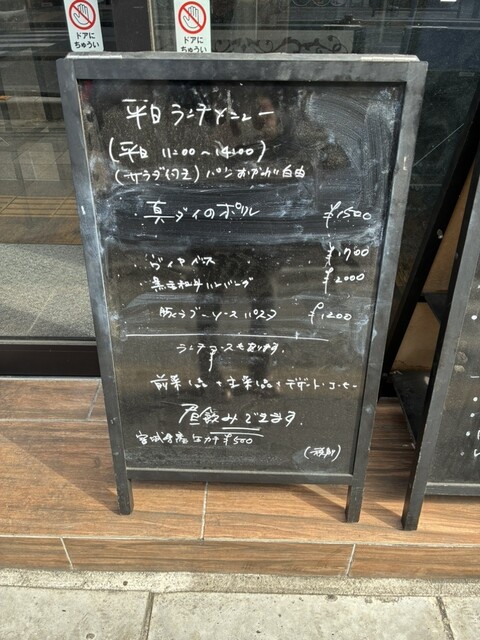 ドアに
ちゅうい
ドアに
ちゅうい
平日 ランチメニュー
(平日 11:00〜14:00)
(サラダ付き) パン 自由
・真ダイのポワレ ¥1500
・ブイヤベース ¥1700
・黒毛和牛ハンバーグ ¥2000
・豚ラグーソース パスタ ¥1200
ランチコースもあります。
前菜1品+主菜1品+デザート・コーヒー
昼飲みできます。
宮城 カキ ¥500
(税別)